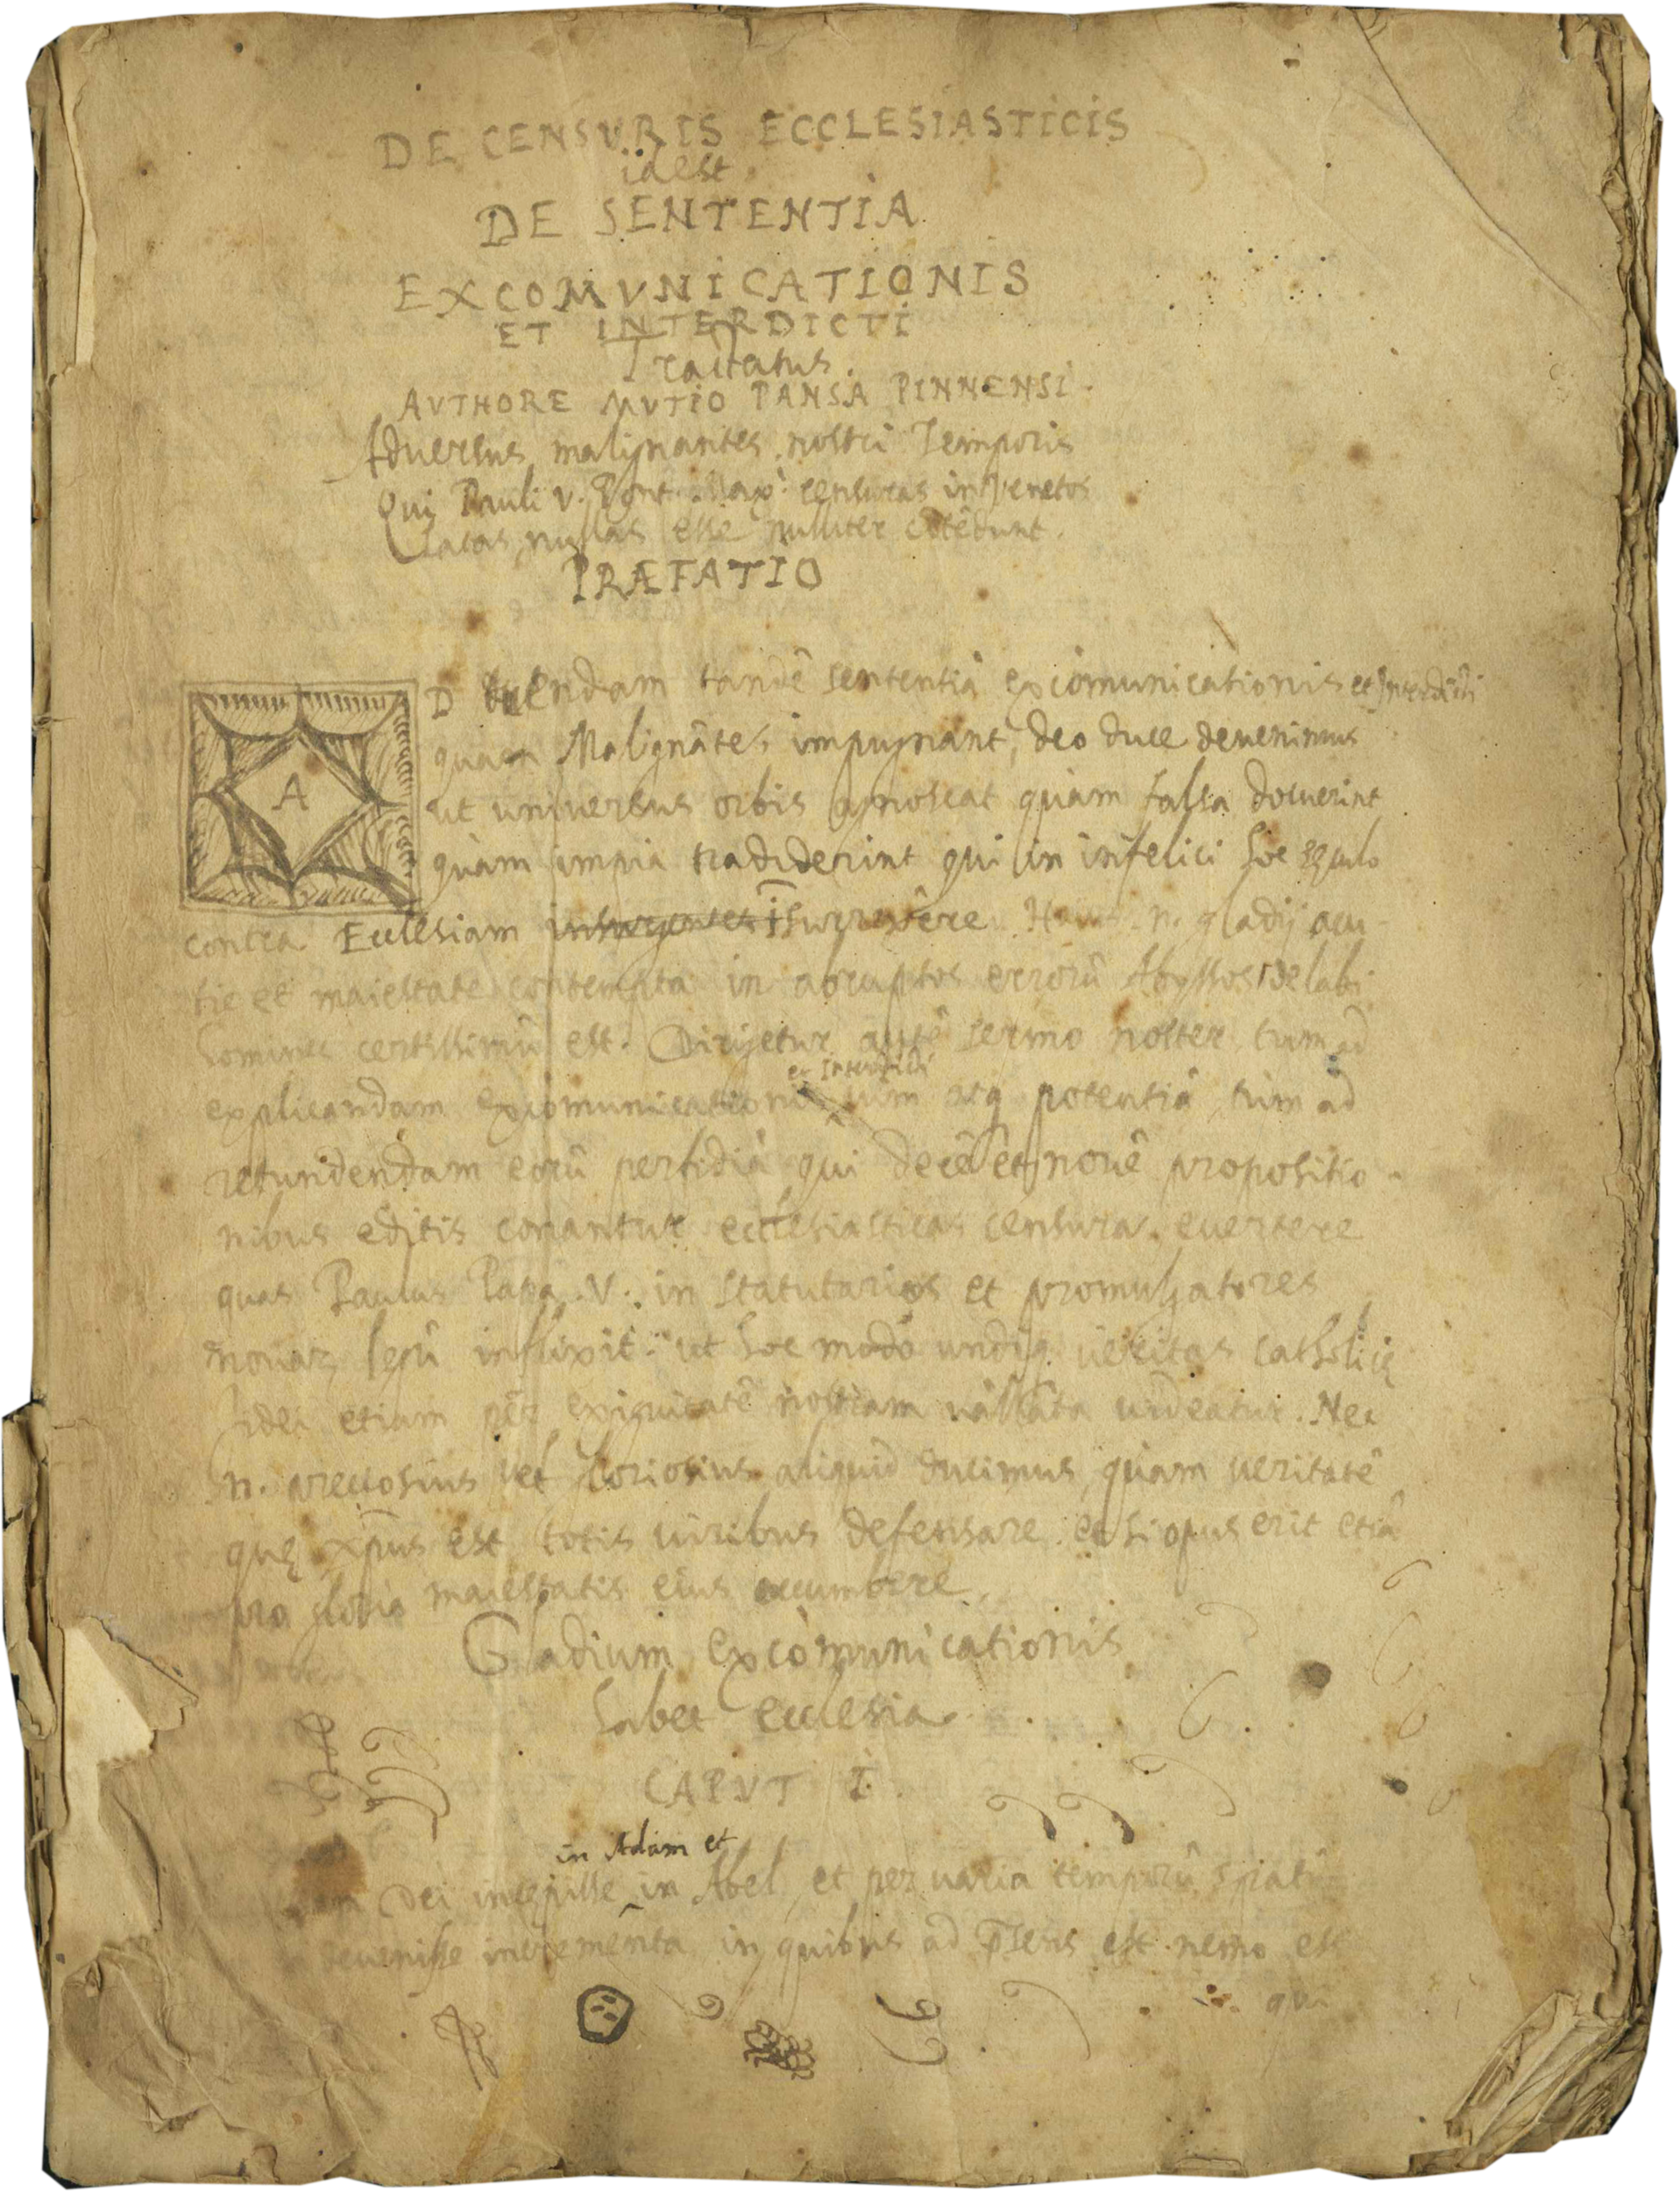 DE CENSVRIS ECCLESIASTICIS
idest
DE SENTENTIA
EXCOMVNICATIONIS
ET INTERDICTI
Tractatus.
AVTHORE MVTIO PANSA PINNENSI.
Aduersus malignantes nostri Temporis
Qui Pauli V. Pont. Max. censuras in Venetos
latas, nullas esse nulliter cōtēdunt.
PRÆFATIO
AD tuendam tandē sententiā excōmunicationis et Interdicti
quam Malignātes impugnant, deo duce deuenimus
ut uniuersus orbis agnoscat quàm falsa docuerint
quàm impia tradiderint qui in infelici hoc sęculo
contra Ecclesiam insurgentes īsurrexêre. Huius n. gladij acu
tie et maiestate contempta in abruptos errorū Abyssos delabi
homines certissimū est. Dirigetur autē sermo noster, tum ad
et Interdicti
explicandam excomunicationis uim atq potentiā, tum ad
retundendam eorū perfidiā qui decē et nouē propositio
nibus editis conantur ecclesiasticas censuras euertere
quas Paulus Papa V. in statutarios et promulgatores
nouar legū inflixit: ut hoc modo undiq ueritas catholicę
fidei etiam per exiguitatē nostram uallata uideatur. Nec
n. preciosius uel gloriosius aliquid ducimus, quam ueritatē
quę xp̄us est totis uiribus defensare et si opus erit etiā
pro gloria maiestatis eius occumbere.
Gladium excomunicationis
habet ecclesia.
CAPVT I.
in Adam et
Dei incępisse in Abel, et per uaria temporū spatia
deuenisse incrementa in quibus ad p̄sens est nemo est
qui